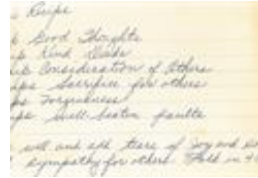 Recipe
p Good Thoughts
p Kind Deeds
up Consideration of Others
ps Sacrifice for others
ps Forgiveness
ps well beaten faults
well and add tears of Joy and so
sympathy for others. Fold in 4